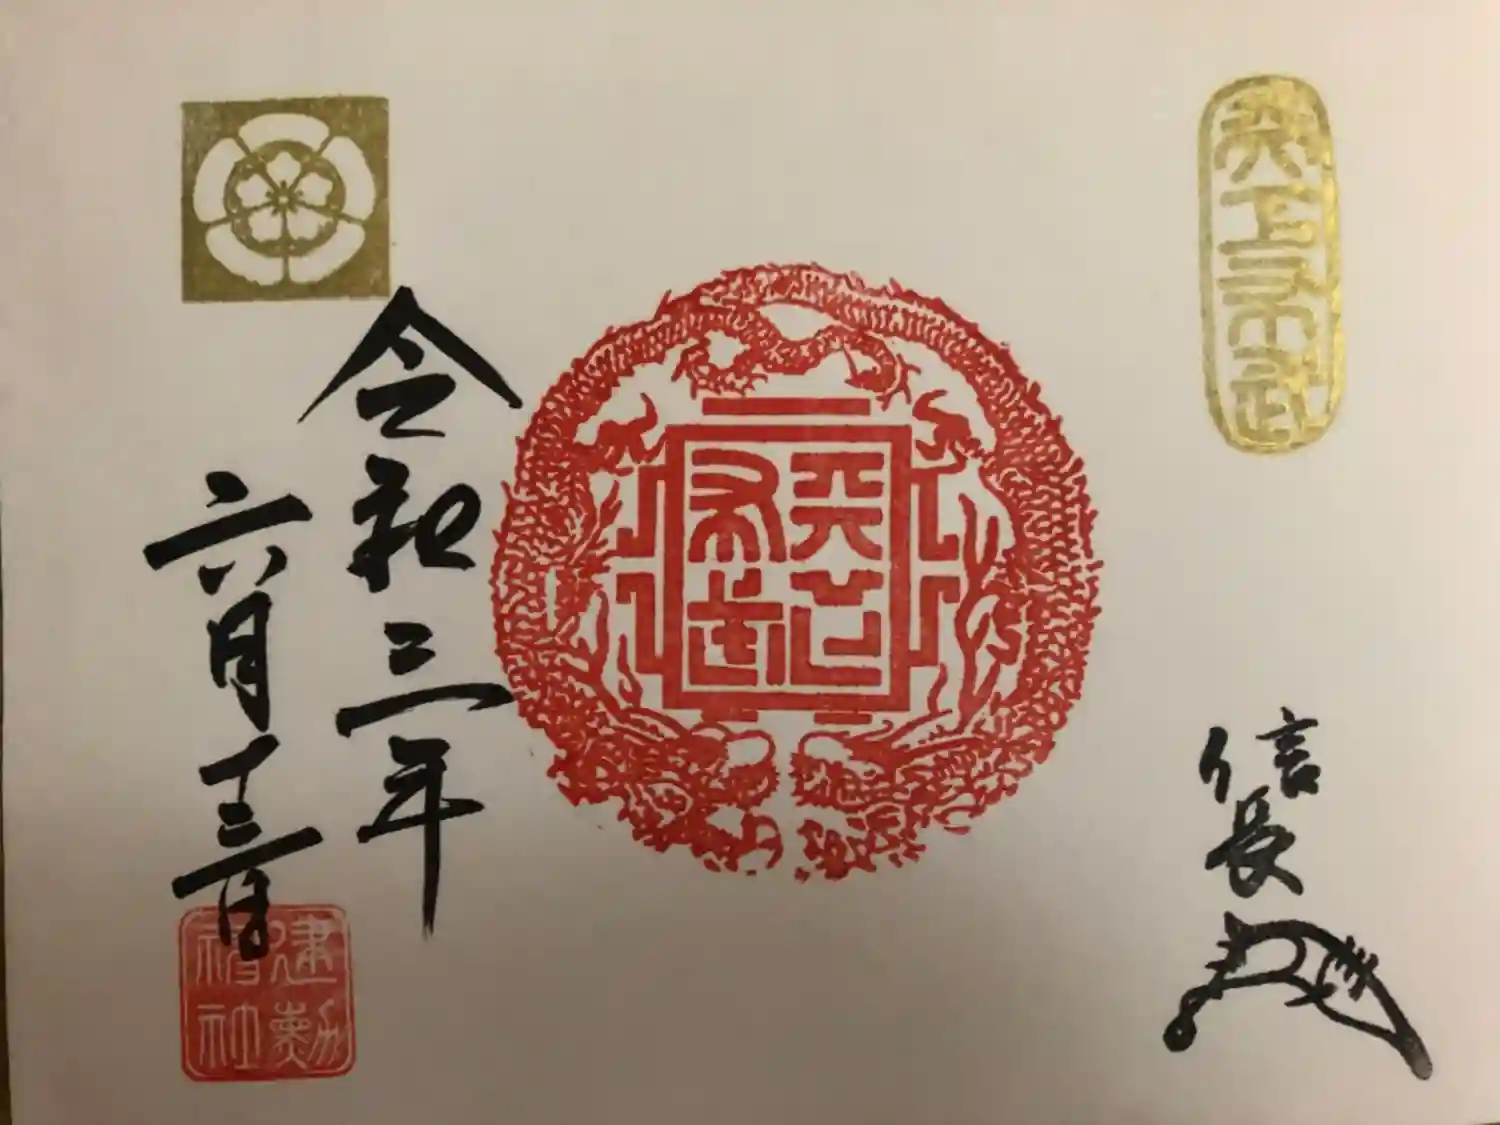 天下布武
信長
天下
布武
令和三年
六月十三日
建勲
神社